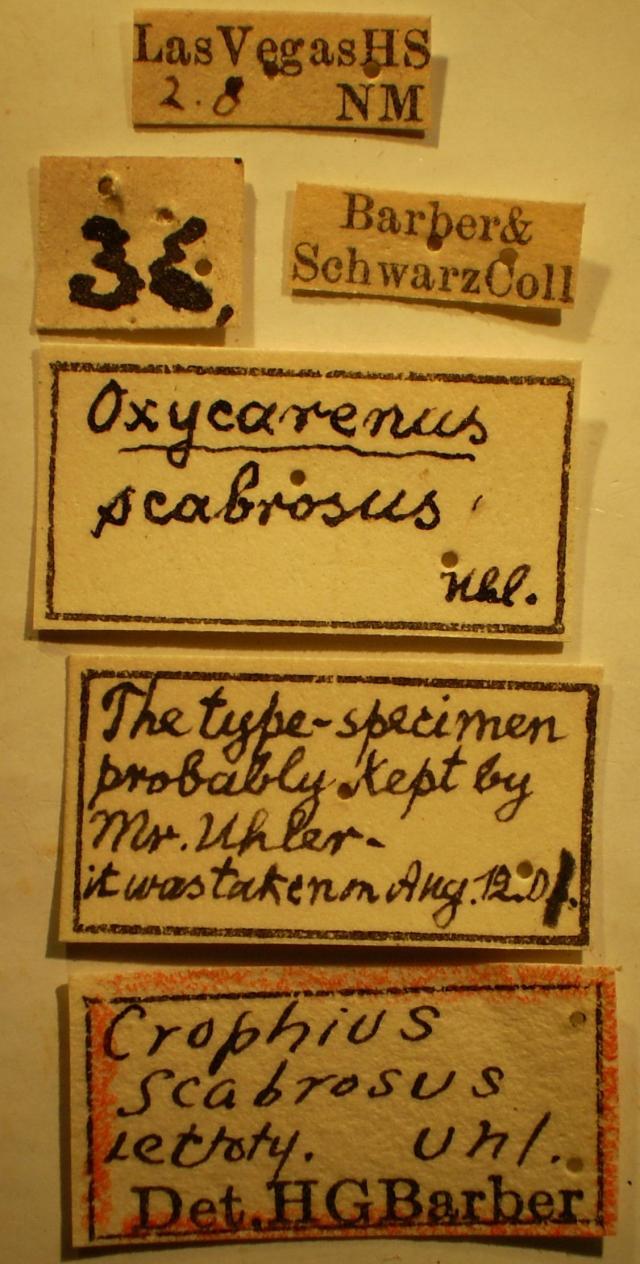 LasVegasHS
2.8 NM
36,
Barber&
SchwarzColl
Oxycarenus
scabrosus
Uhl.
The type-specimen
probably kept by
Mr. Uhler-
it was taken on Aug. 12.01.
Crophius
scabrosus
lectoty. Uhl.
Det.HGBarber